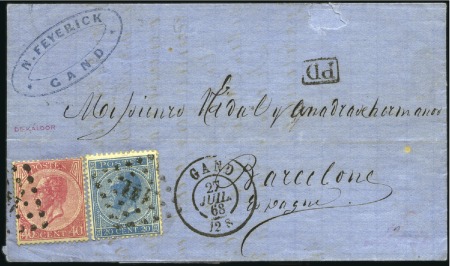 N. FEYERICK
GAND
PD
Messieurs Vidal y Cuadras hermanos
DE KALBOR
Barcelone
Espagne
GAND
27
JUIL.
68
12 S
POSTE
40 CENT 40
POSTE
20 CENT 20